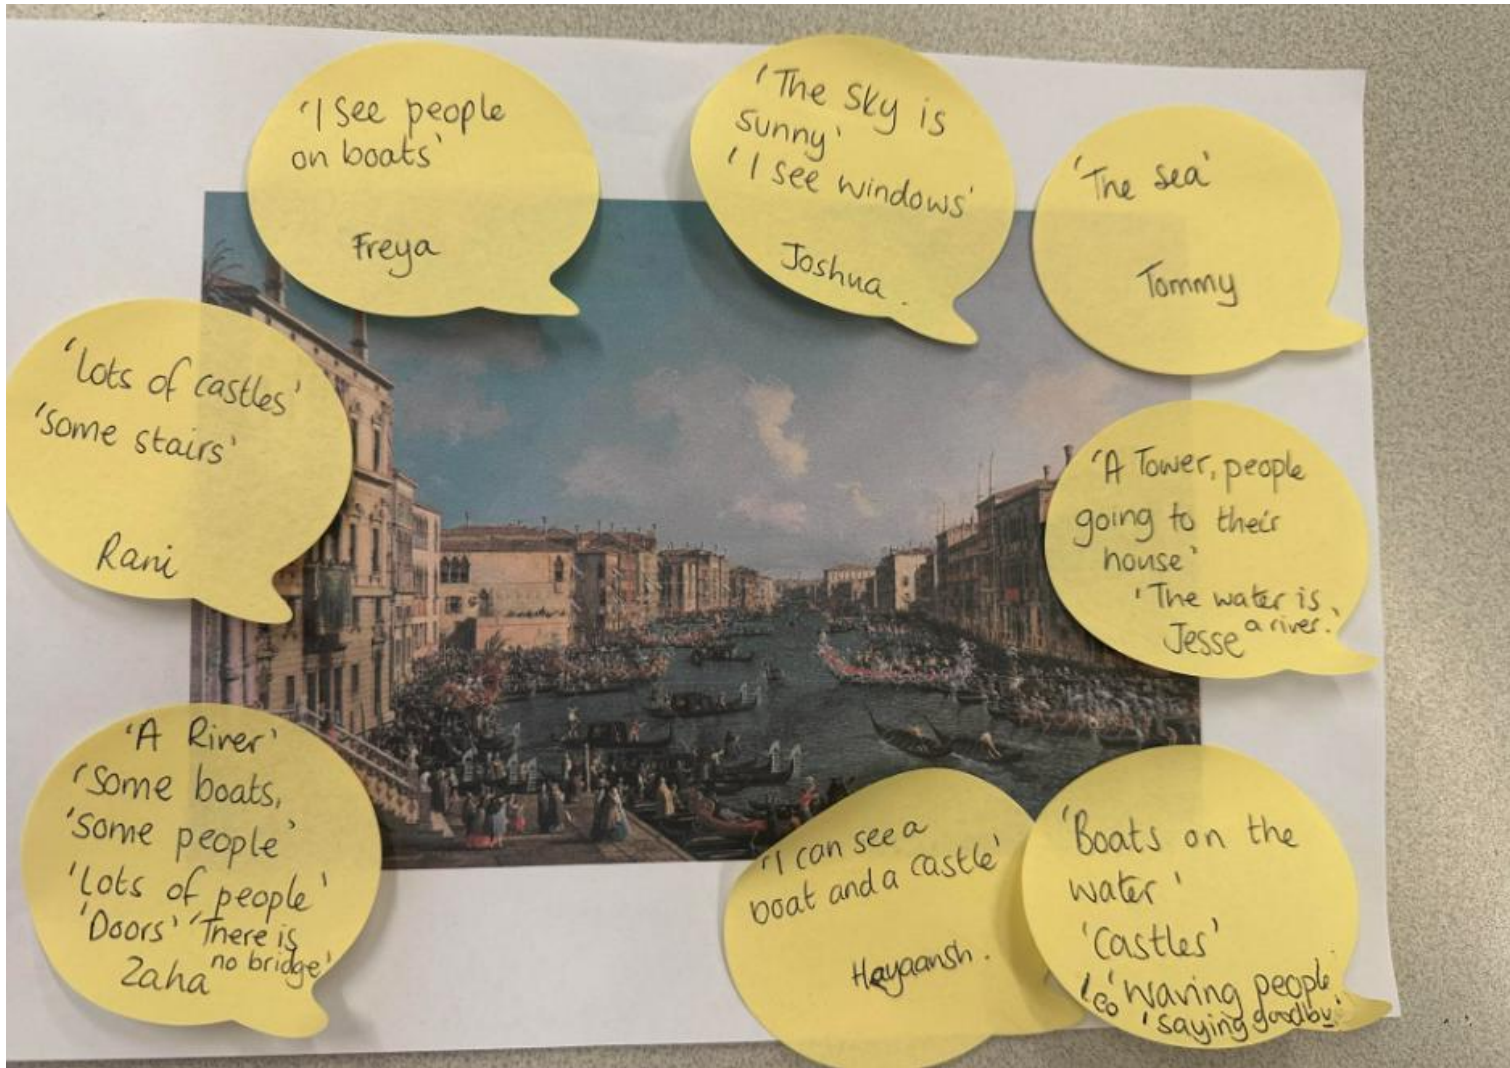 'I see people
on boats'
Freya
'The Sky is
sunny'
'I see windows'
Joshua.
'The sea'
Tommy
'Lots of castles'
'some stairs'
Rani
'A Tower, people
going to their
house'
'The water is
a river.'
Jesse
'A River'
'some boats,
'some people'
'Lots of people'
'Doors' 'There is
no bridge'
Zaha
'I can see a
boat and a castle'
Hayaansh.
'Boats on the
water'
'Castles'
Leo 'Waving people
'saying goodby'